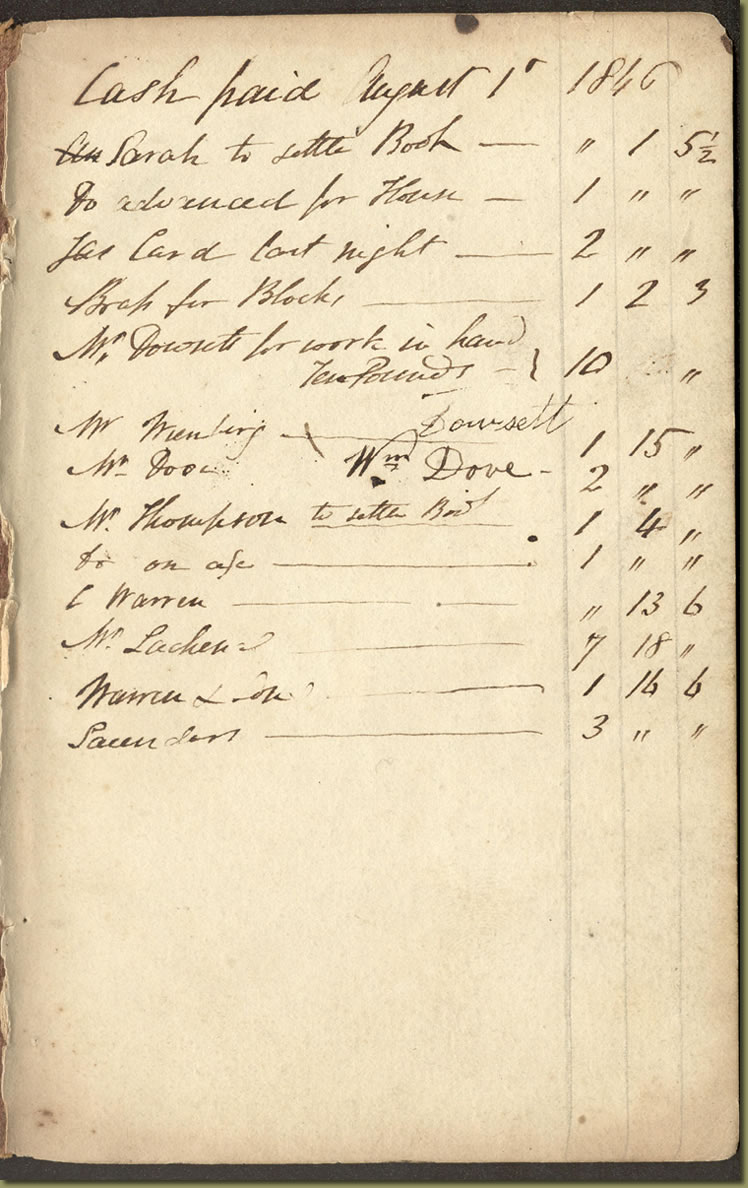 Cash paid August 1st 1846
Sarah to settle Book — " 1 5½
Do advanced for House — 1 " "
Jas Card last night — 2 " "
Brass for Blocks — 1 2 3
Mr Dowsett for work in hand
Ten Pounds — } 10 "
Dowsett
Mr — 1 15 "
Mr Dove Wm Dove - 2 " "
Mr Thompson to settle Book 1 4 "
Do on a/c — 1 " "
C Warren — " 13 6
Mr Lachenal — 7 18 "
Warren & Son — 1 16 6
Saunders — 3 " "